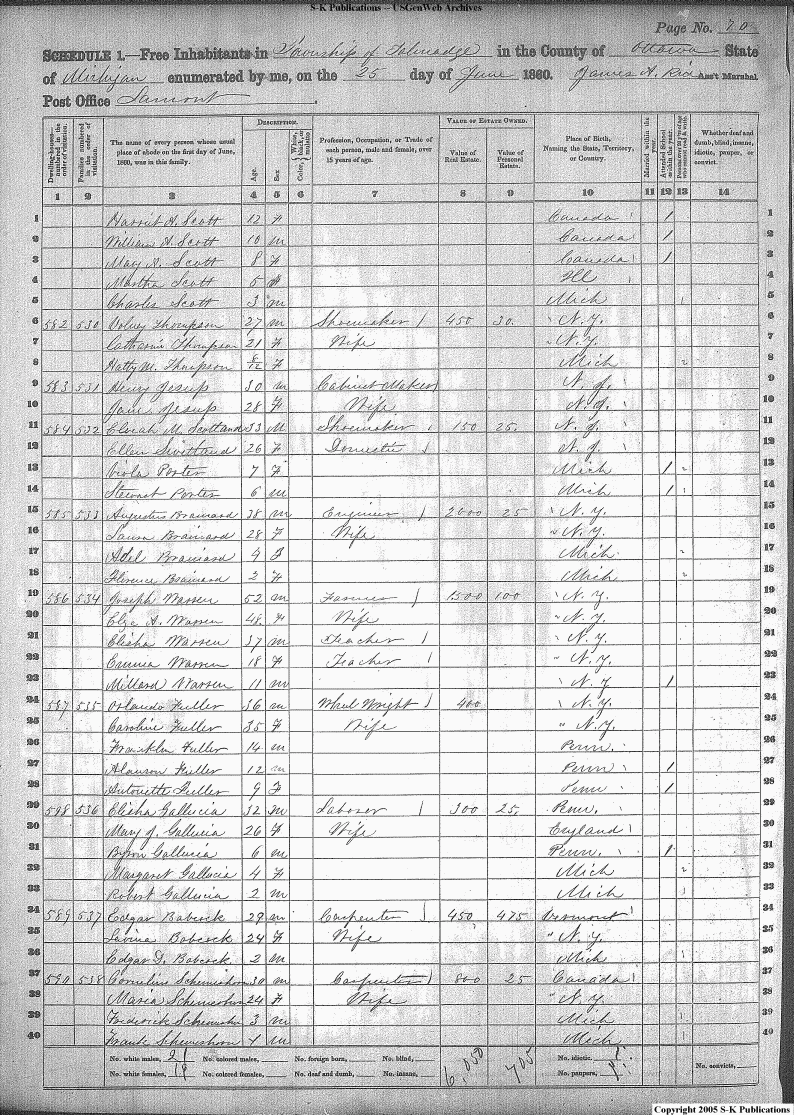 S-K Publications -- USGenWeb Archives
Page No. 70
SCHEDULE 1.—Free Inhabitants in Township of Talmadge in the County of Ottawa State
of Michigan enumerated by me, on the 25 day of June 1860. James A. Rix Ass't Marshal
Post Office Lamont.
Dwelling-houses— numbered in the order of visitation. Families numbered in the order of visitation. The name of every person whose usual place of abode on the first day of June, 1860, was in this family. DESCRIPTION. Age. Sex Color, White, black, or mulatto Profession, Occupation, or Trade of each person, male and female, over 15 years of age. VALUE OF ESTATE OWNED. Value of Real Estate. Value of Personal Estate. Place of Birth, Naming the State, Territory, or Country. Married within the year. Attended School within the year. Whether deaf and dumb, blind, insane, idiotic, pauper, or convict.
1 2 3 4 5 6 7 8 9 10 11 12 13 14
1 Harriet A. Scott 12 F Canada 1 1
2 William A. Scott 10 m Canada 1 2
3 Mary A. Scott 8 F Canada 1 3
4 Martha Scott 5 F Ill 4
5 Charles Scott 3 m Mich 5
6 582 530 Volney Thompson 27 m Shoemaker 450 30. N.Y. 6
7 Catharin Thompson 21 F Wife N.Y. 7
8 Hatty M. Thompson 8/12 F Mich 8
9 583 531 Henry Jesup 30 m Cabinet Maker N.J. 9
10 Jane Jesup 28 F Wife N.J. 10
11 584 532 M. Scotland 33 M Shoemaker 150 25. N.J. 11
12 Ellen 26 F Domestic N.J. 12
13 Viola Porter 7 F Mich 1 13
14 Stewart Porter 6 m Mich 1 14
15 585 533 Augustus Brainard 38 m Engineer 2000 25 N.Y. 15
16 Laura Brainard 28 F Wife N.Y. 16
17 Adel Brainard 4 F Mich 17
18 Florence Brainard 2 F Mich 18
19 586 534 Joseph Warren 52 m Farmer 1500 100 N.Y. 19
20 Elza A. Warren 48 F Wife N.Y. 20
21 Elisha Warren 37 m Teacher N.Y. 21
22 Emma Warren 18 F Teacher N.Y. 22
23 Millard Warren 11 m N.Y 1 23
24 587 535 Orlando Fuller 36 m Wheel Wright 400 N.Y. 24
25 Caroline Fuller 35 F Wife " N.Y. 25
26 Franklin Fuller 14 m Penn. 26
27 Alanson Fuller 12 m Penn 1 27
28 Antonette Fuller 9 F Penn 1 28
29 598 536 Elisha Gallucia 32 m Laborer 300 25. Penn. 29
30 Mary J. Gallucia 26 F Wife England 30
31 Byron Gallucia 6 m Penn. 1 31
32 Margaret Gallucia 4 F Mich 32
33 Robert Gallucia 2 m Mich 33
34 589 537 Edgar Babcock 29 m Carpenter 450 475 Vermont 34
35 Lavina Babcock 24 F Wife " N.Y. 35
36 Edgar D. Babcock 2 m Mich 36
37 590 538 Cornelius Schemerhorn 30 m Carpenter 800 25 Canada 37
38 Maria Schemerhorn 24 F Wife " N.Y. 38
39 Frederick 3 m Mich 39
40 Frank Schemerhorn 1 m Mich 40
No. white males, 21 No. colored males, No. foreign born, No. blind, 6,050 705 No. idiotic, No. convicts,
No. white females, 18 No. colored females, No. deaf and dumb, No. insane, No. paupers,
Copyright 2005 S-K Publications